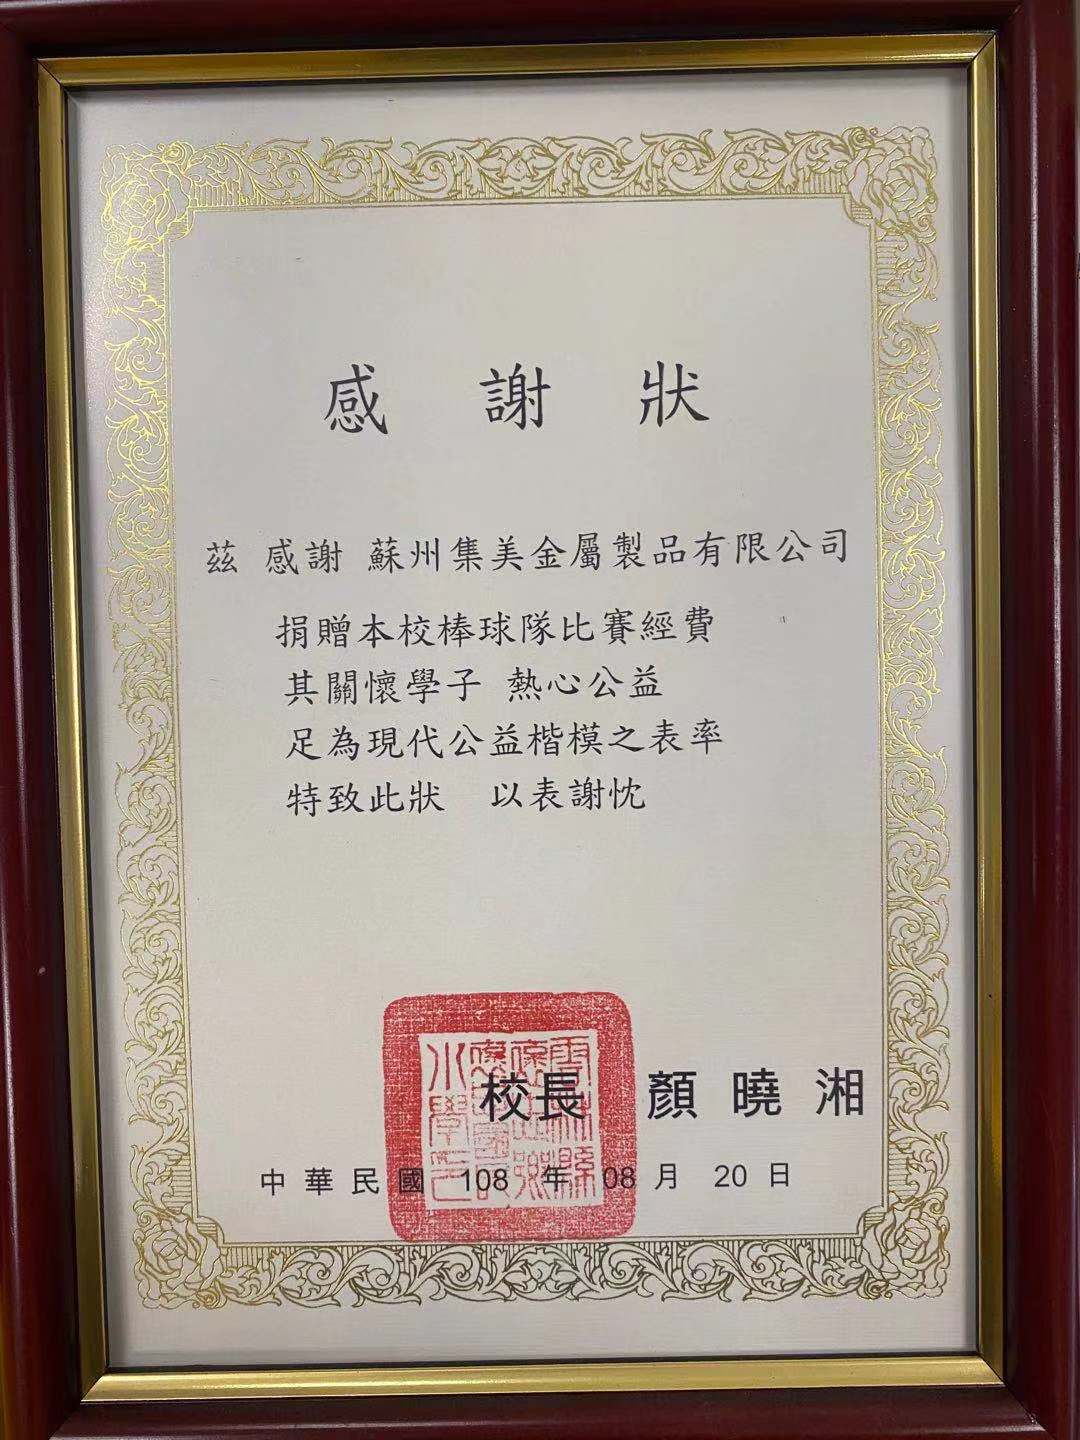 感謝狀
茲 感謝 蘇州集美金屬製品有限公司
捐贈本校棒球隊比賽經費
其關懷學子 熱心公益
足為現代公益楷模之表率
特致此狀 以表謝忱
校長 顏曉湘
中華民國 108 年 08 月 20 日